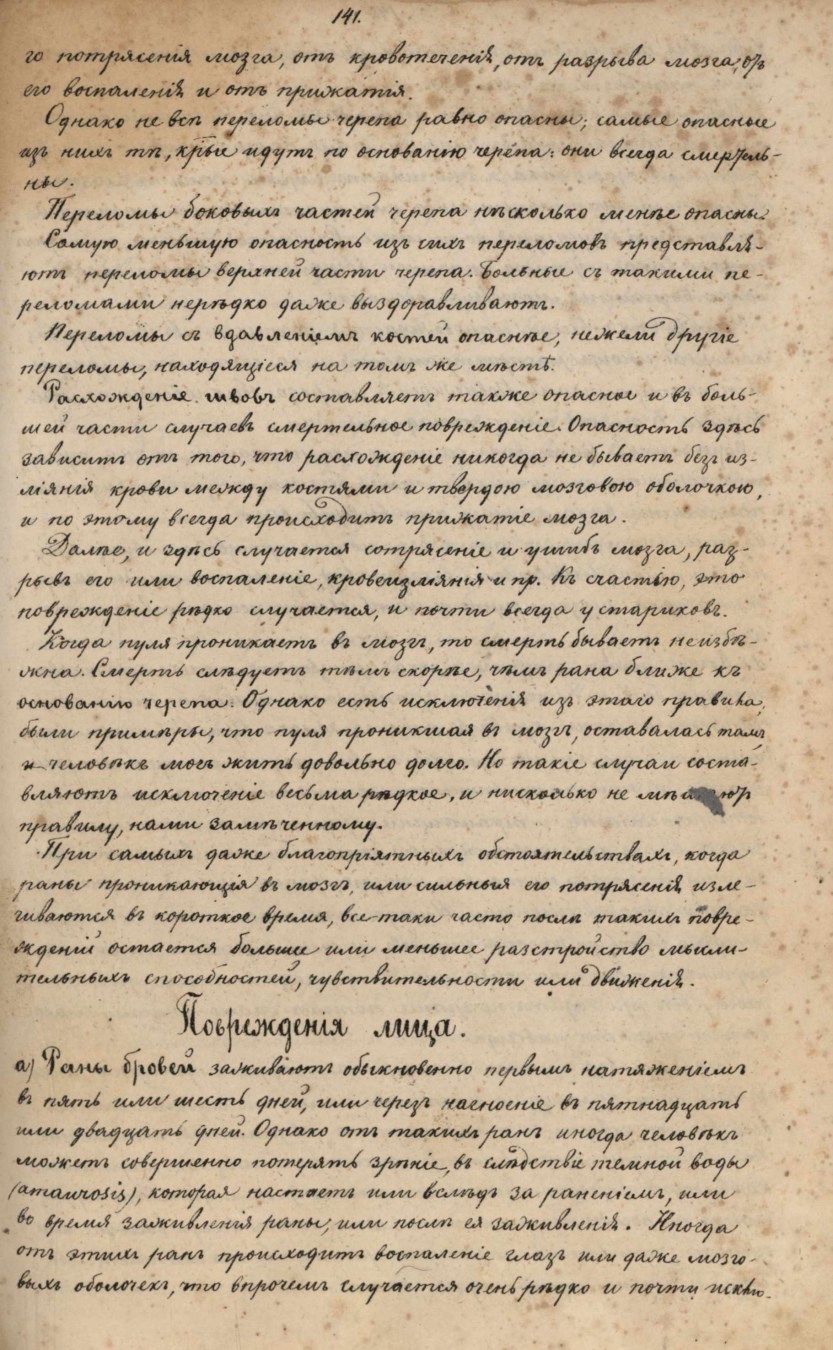 141.
го потрясенія мозга, отъ кровотеченія, отъ разрыва мозга, отъ
его воспаленія и отъ прижатія.
Однако не всѣ переломы черепа равно опасны; самые опасные
изъ нихъ тѣ, крые идутъ по основанію черепа: они всегда смертель-
ны.
Переломы боковыхъ частей черепа нѣсколько менѣе опасны
Самую меньшую опасность изъ сихъ переломовъ представля-
ютъ переломы верхней части черепа. Больные съ такими пе-
реломами нерѣдко даже выздоравливаютъ.
Переломы съ вдавленіемъ костей опаснѣе, нежели другіе
переломы, находящіеся на томъ же мѣстѣ.
Расхожденіе швовъ составляетъ также опасное и въ боль-
шей части случаевъ смертельное поврежденіе. Опасность здѣсь
зависитъ отъ того, что расхожденіе никогда не бываетъ безъ из-
ліянія крови между костями и твердою мозговою оболочкою,
и по этому всегда происходитъ прижатіе мозга.
Далѣе, и здѣсь случается сотрясеніе и ушибъ мозга, раз-
рывъ его или воспаленіе, кровеизліянія и пр. Къ счастью, это
поврежденіе рѣдко случается, и почти всегда у стариковъ.
Когда пуля проникаетъ въ мозгъ, то смерть бываетъ неизбѣ-
жна. Смерть слѣдуетъ тѣмъ скорѣе, чѣмъ рана ближе къ
основанію черепа. Однако есть исключенія изъ этаго правила,
были примѣры, что пуля проникшая въ мозгъ, оставалась тамъ
и человѣкъ могъ жить довольно долго. Но такіе случаи соста-
вляютъ исключеніе весьма рѣдкое, и нисколько не мѣшаютъ
правилу, нами замѣченному.
При самыхъ даже благопріятныхъ обстоятельствахъ, когда
раны проникающія въ мозгъ, или сильныя его потрясенія изле-
чиваются въ короткое время, все-таки часто послѣ такихъ повре-
жденій остается большее или меньшее разстройство мысли-
тельныхъ способностей, чувствительности или движенія.
Поврежденія лица.
а) Раны бровей заживаютъ обыкновенно первымъ натяженіемъ
въ пять или шесть дней, или черезъ нагноеніе въ пятнадцать
или двадцать дней. Однако отъ такихъ ранъ иногда человѣкъ
можетъ совершенно потерять зрѣніе, въ слѣдствіе темной воды
(amaurosis), которая настаетъ или вслѣдъ за раненіемъ, или
во время заживленія раны, или послѣ ея заживленія. Иногда
отъ этихъ ранъ происходитъ воспаленіе глазъ или даже мозго-
выхъ оболочекъ, что впрочемъ случается очень рѣдко и почти исклю-